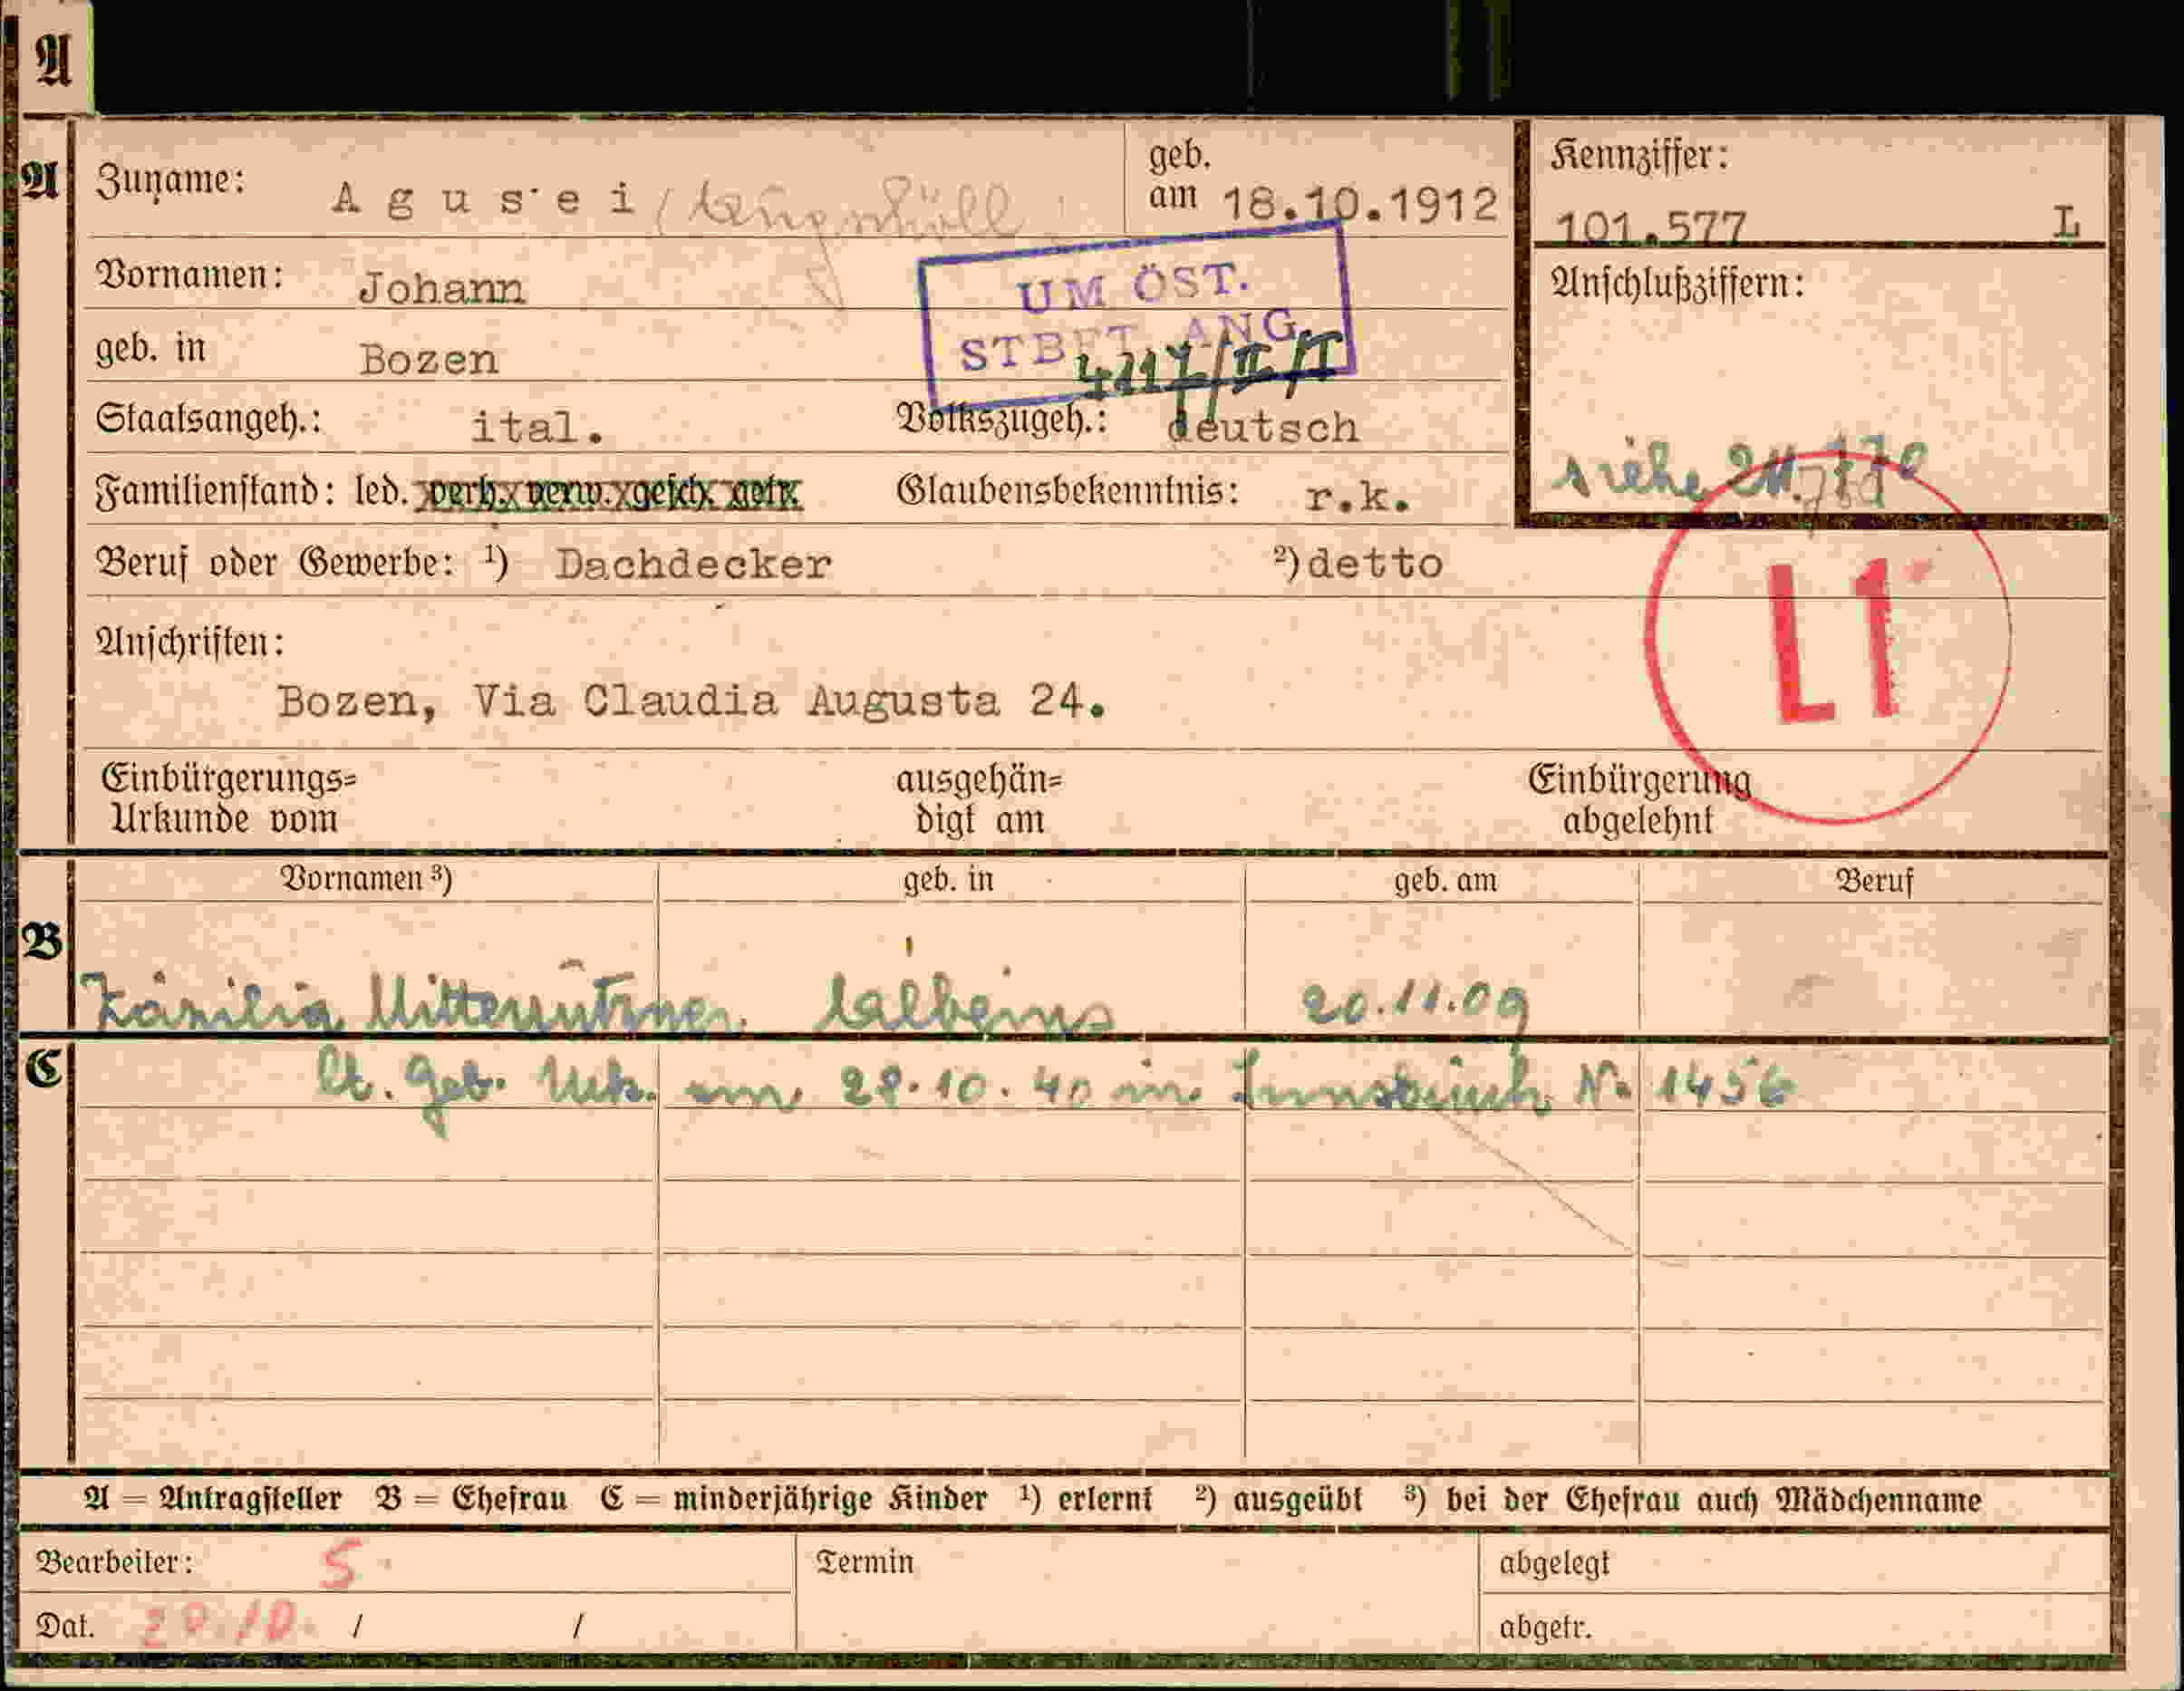 A
A
Zuname: Agusei
geb. am 18.10.1912
Kennziffer:
101.577 L
Vornamen: Johann
UM ÖST.
STBET. ANG.
Anschlußziffern:
geb. in Bozen
Staatsangeh.: ital. Volkszugeh.: deutsch
siehe
Familienstand: led. verh. verw. gesch. getr. Glaubensbekenntnis: r.k.
Beruf oder Gewerbe: ¹) Dachdecker ²) detto
L1
Anschriften:
Bozen, Via Claudia Augusta 24.
Einbürgerungs= ausgehän= Einbürgerung
Urkunde vom digt am abgelehnt
Vornamen ³) geb. in geb. am Beruf
B
Mitterrutzner Albeins 20.11.09
C
lt. Geb. Urk. am 28.10.40 in Innsbruck No 1456
A = Antragsteller B = Ehefrau C = minderjährige Kinder ¹) erlernt ²) ausgeübt ³) bei der Ehefrau auch Mädchenname
Bearbeiter: S Termin abgelegt
Dat. / / abgetr.